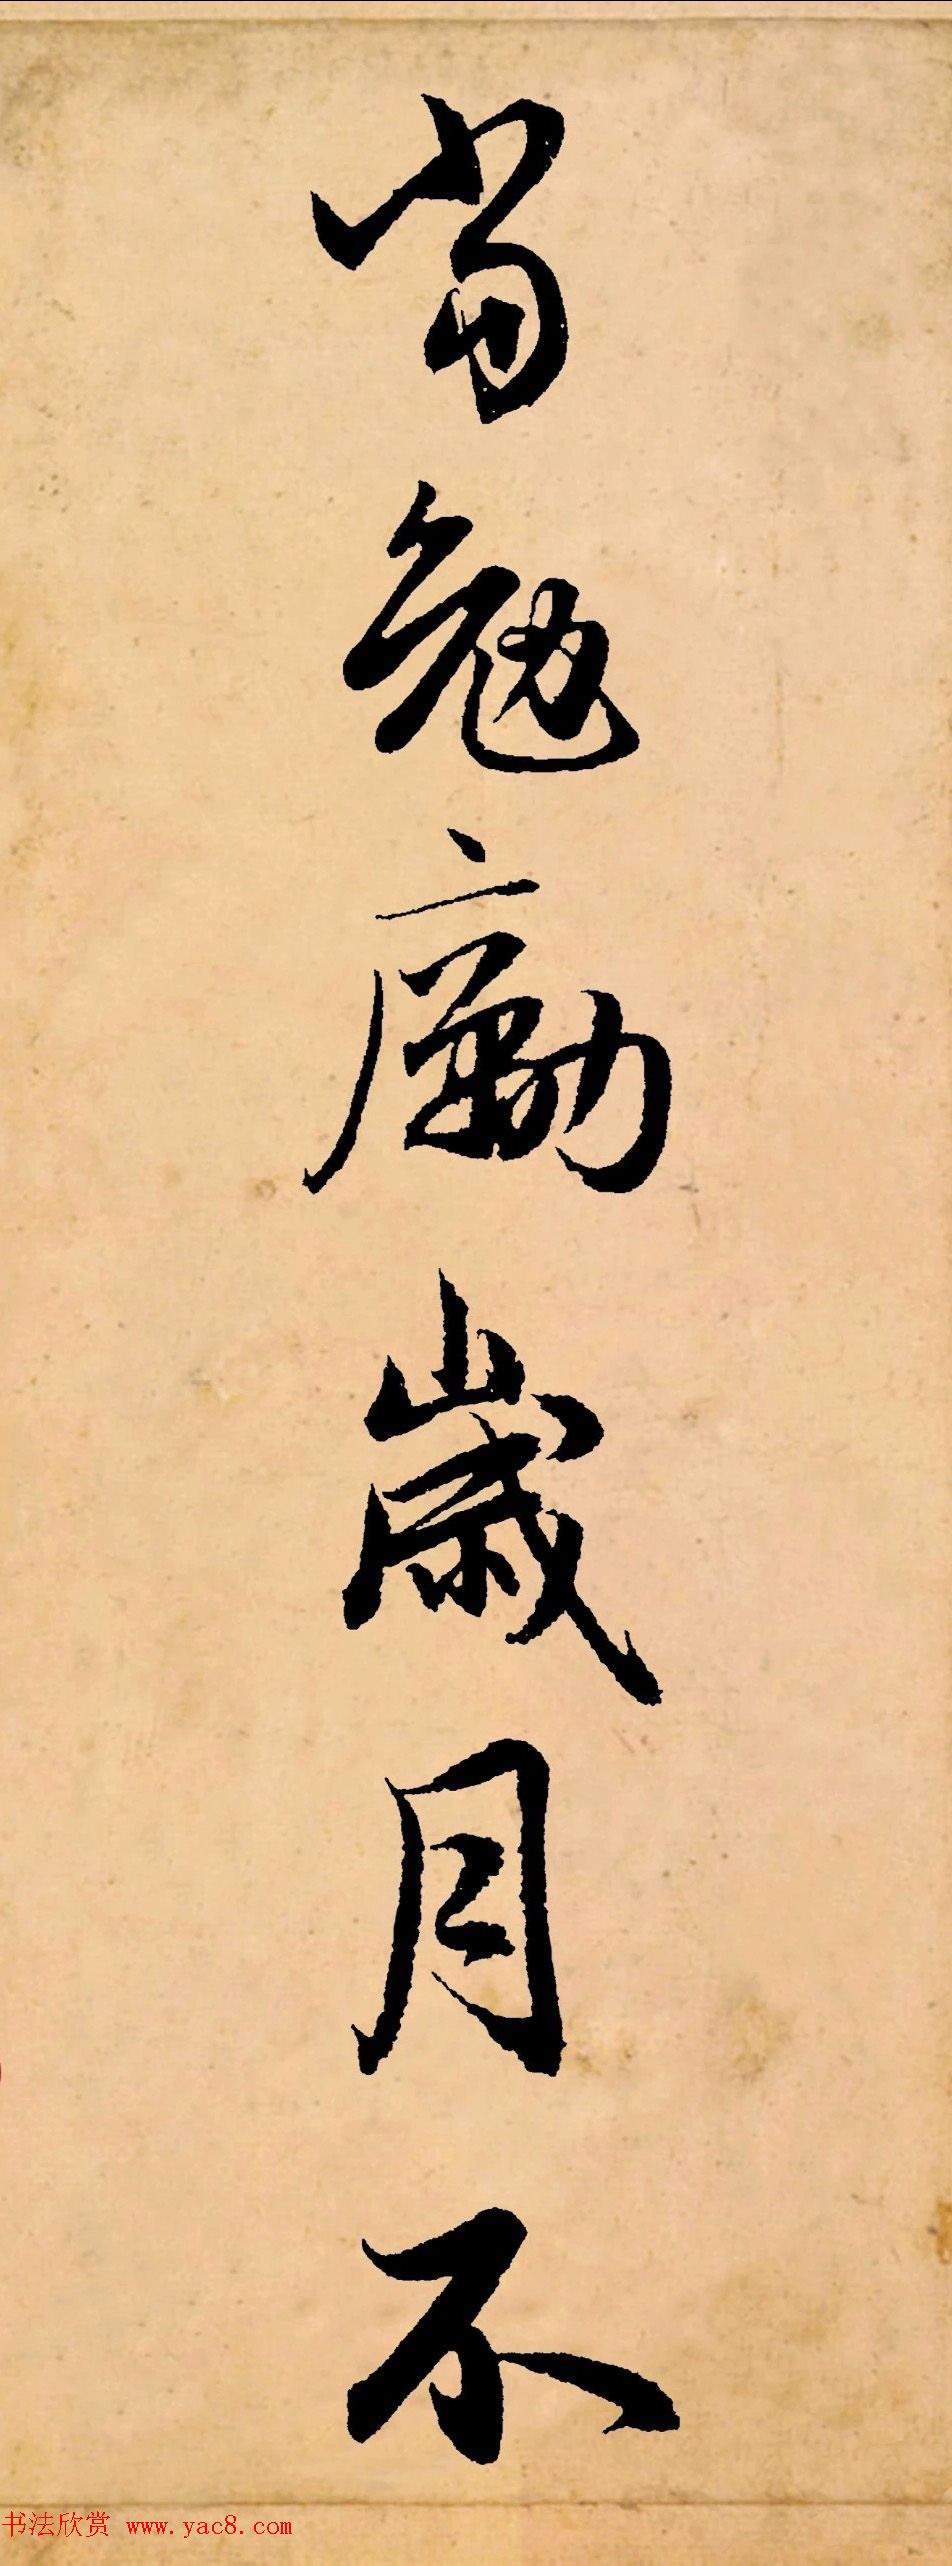 当勉勵歲月不
书法欣赏 www.yac8.com